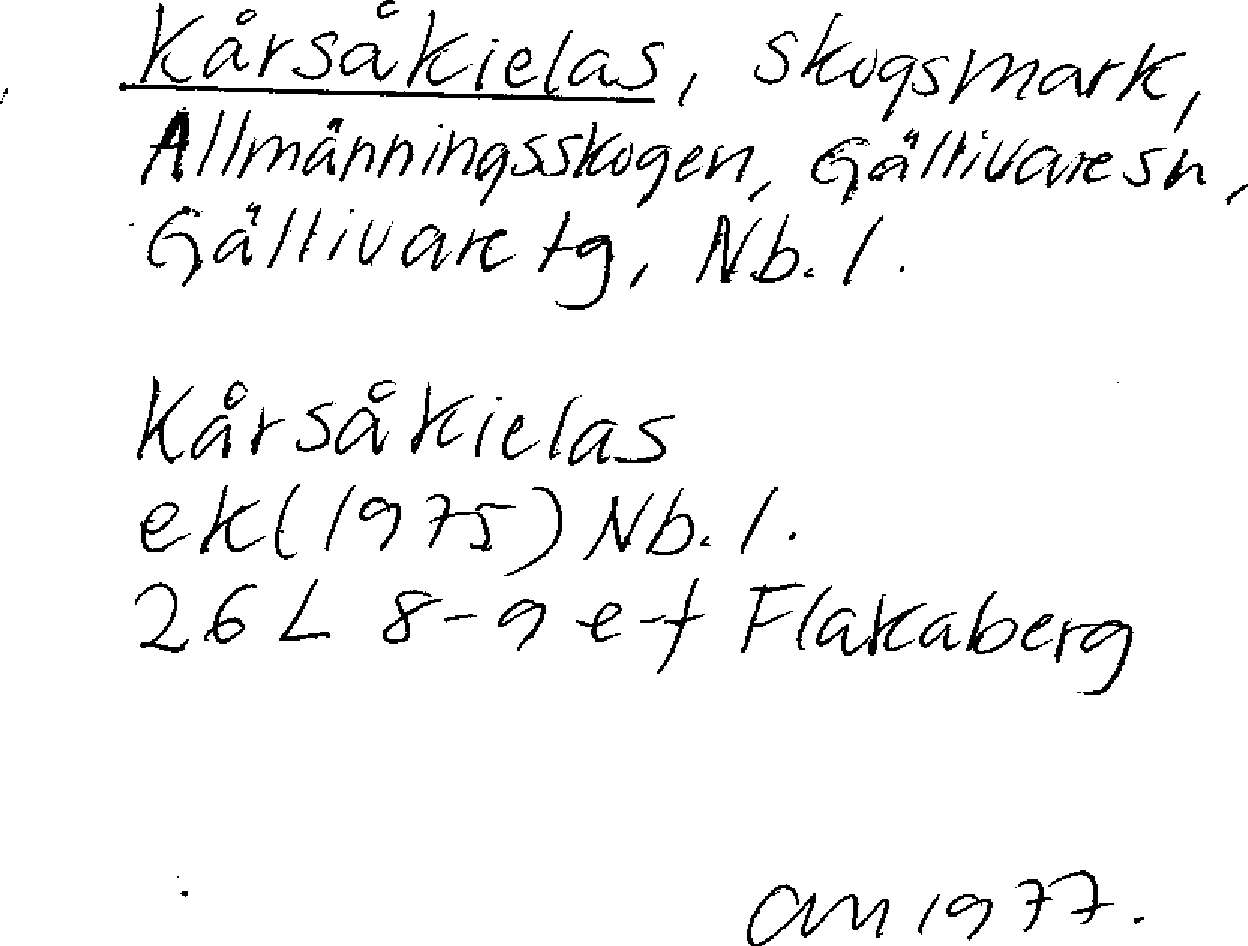 Kårsåkielas, skogsmark,
Allmänningsskogen, Gällivare sn,
Gällivare tg, Nb. l.
Kårsåkielas
ek (1975) Nb. l.
26 L 8-9 e-f Flakaberg
1977.